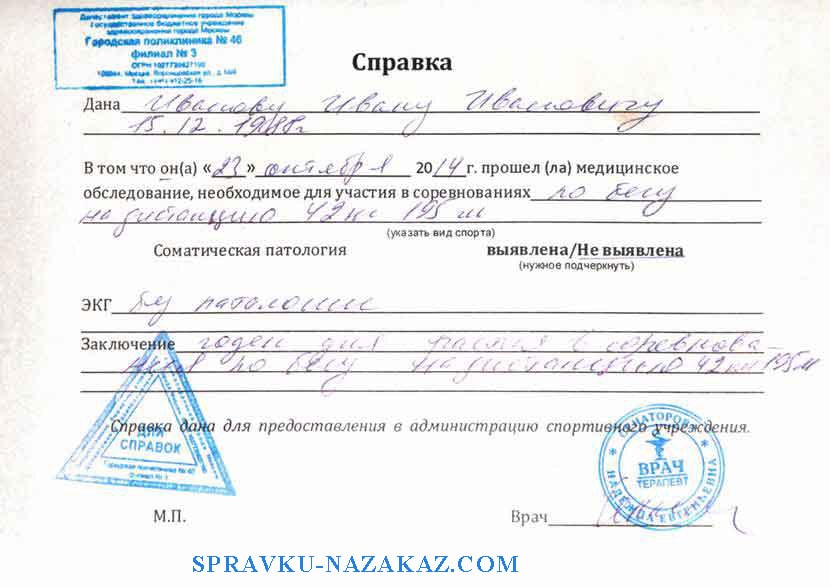 Департамент здравоохранения города Москвы
Государственное бюджетное учреждение
здравоохранения города Москвы
Городская поликлиника № 46
филиал № 3
Справка
Дана Иванову Ивану Ивановичу
15.12.1988г
В том что он(а) «23» октября 2014г. прошел (ла) медицинское
обследование, необходимое для участия в соревнованиях по бегу
на дистанцию 42 км 195 м
(указать вид спорта)
Соматическая патология выявлена/Не выявлена
(нужное подчеркнуть)
ЭКГ без паталогии
Заключение годен для участия в соревнова-
ниях по бегу на дистанцию 42 км 195 м
Справка дана для предоставления в администрацию спортивного учреждения.
ДЛЯ
СПРАВОК
Городская поликлиника № 46
Филиал № 3
ВРАЧ
ТЕРАПЕВТ
НАДЕЖДА ЕВГЕНЬЕВНА
М.П. Врач
SPRAVKU-NAZAKAZ.COM